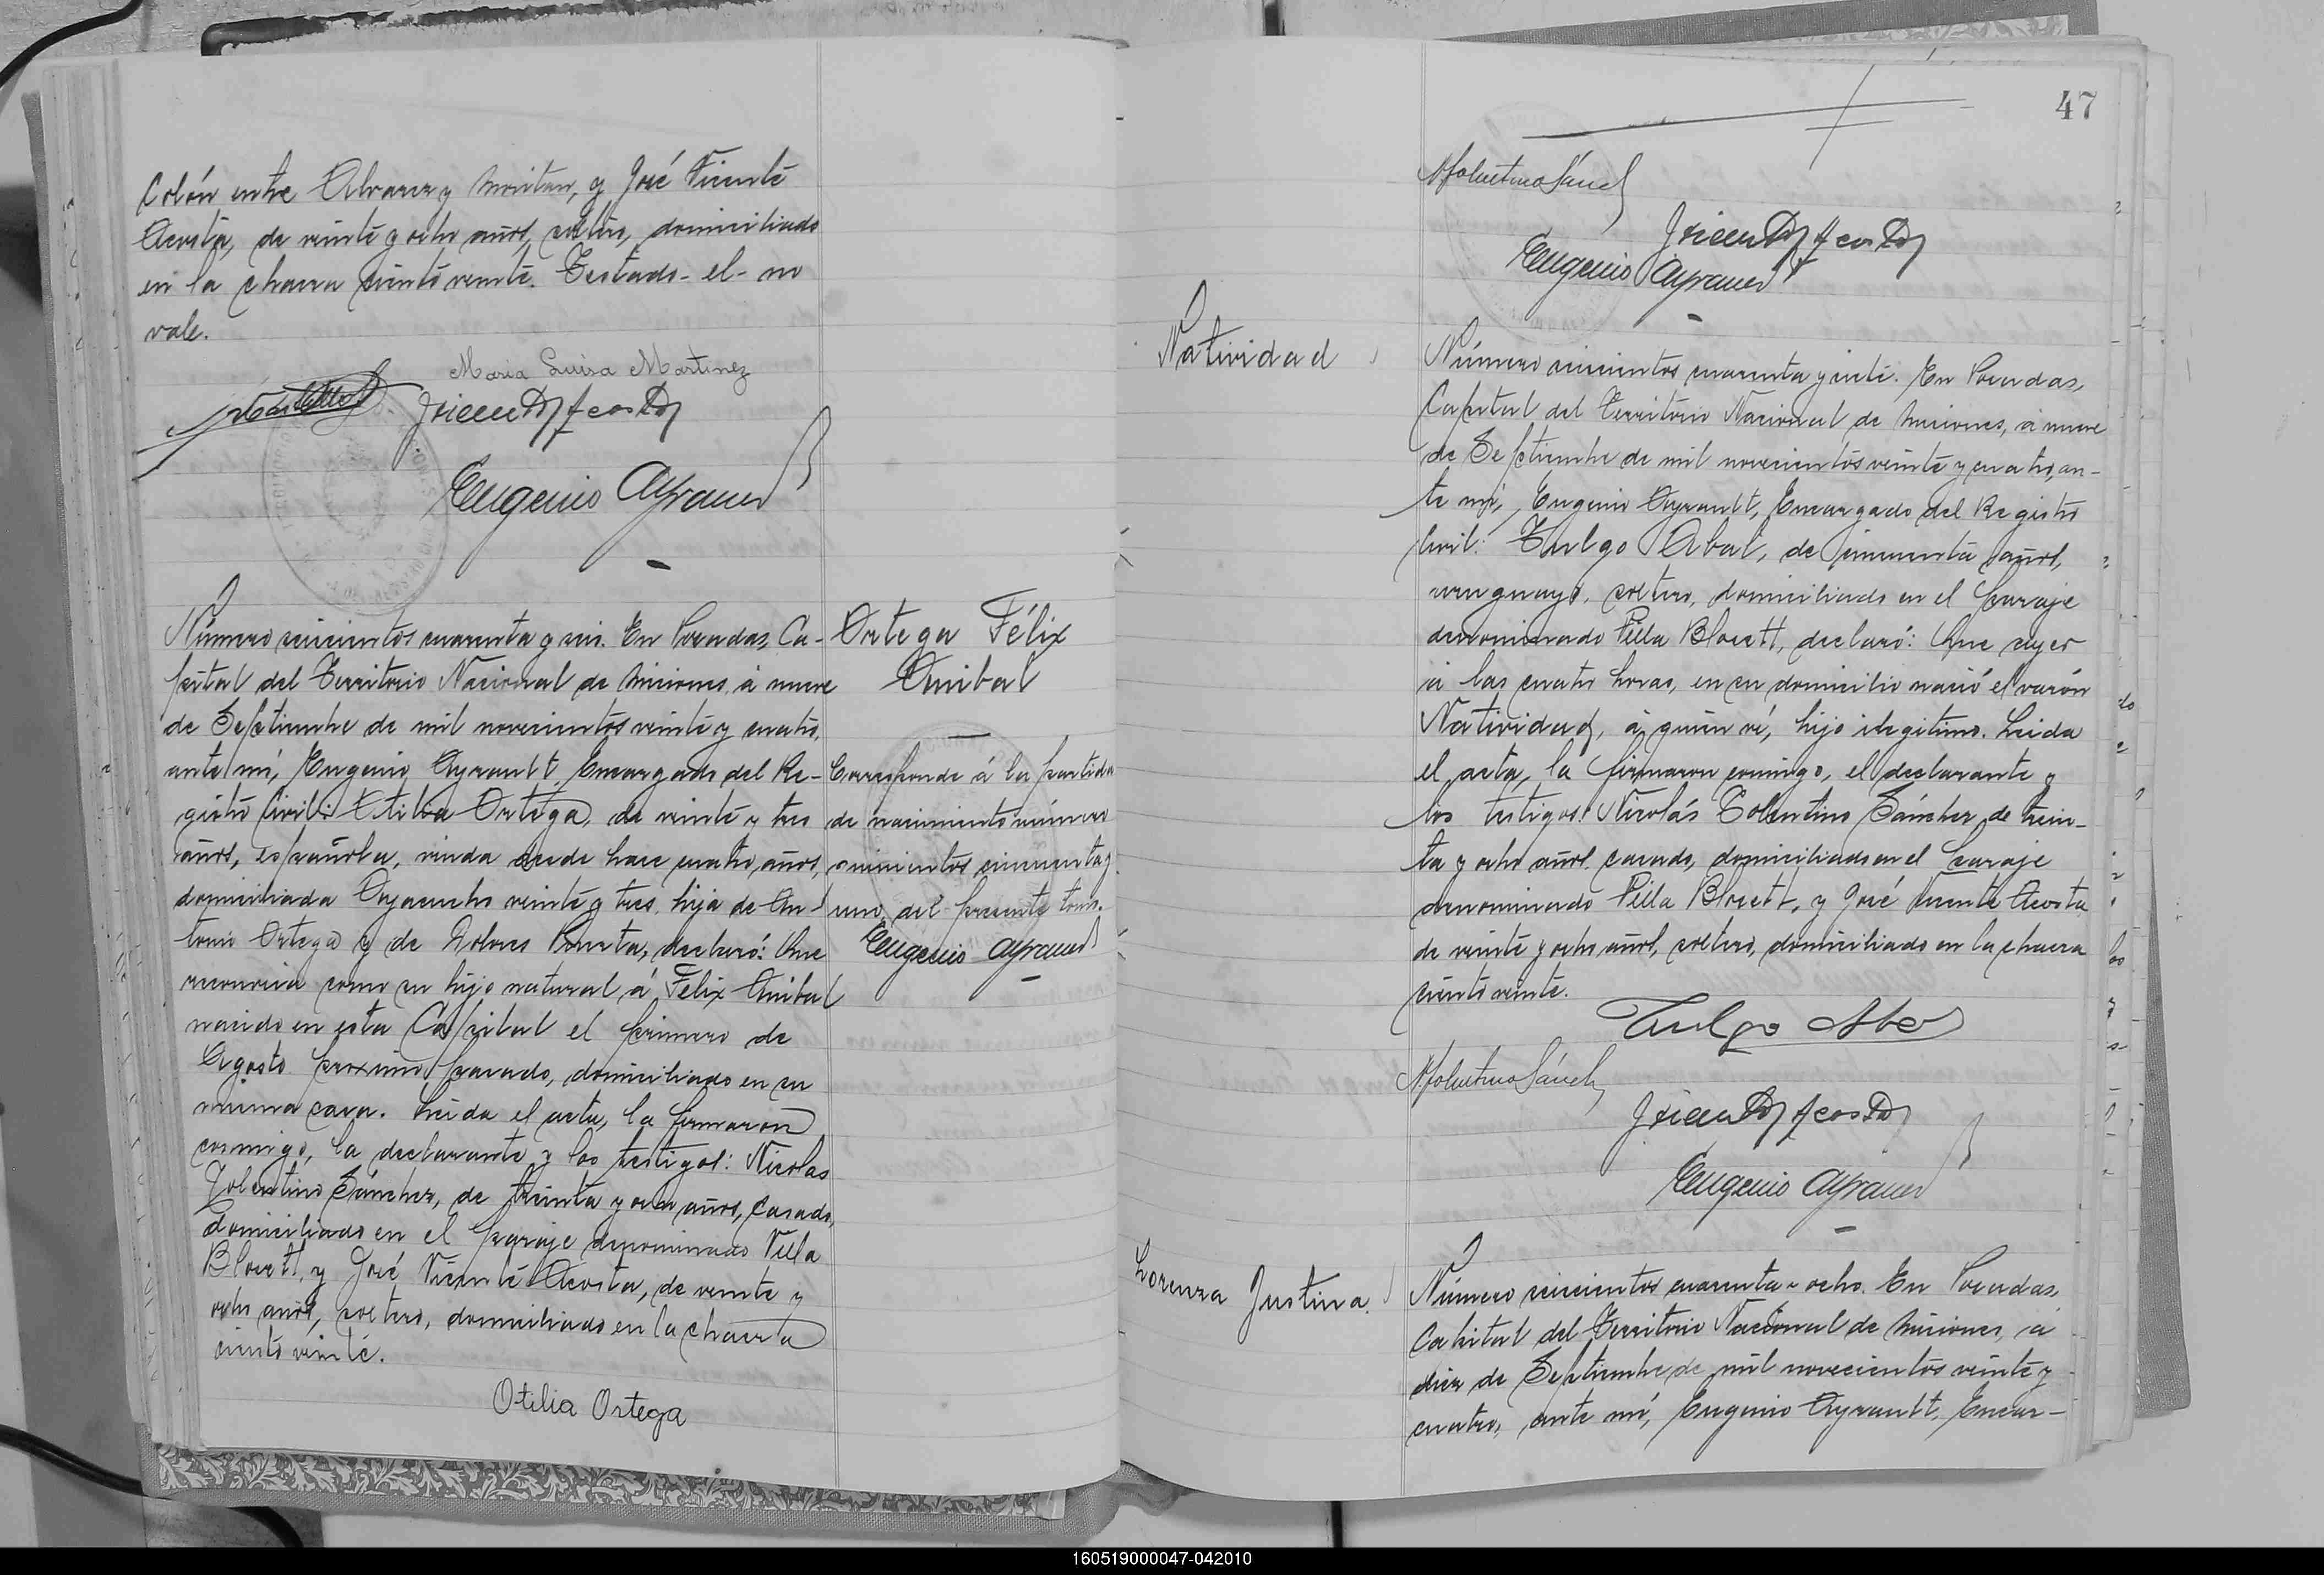 Colón entre Alvarez y Moritan, y José Vicente
Acosta, de veinte y ocho años, soltero, domiciliado
en la chacra ciento veinte. Testado - el - no
vale.
Maria Luisa Martinez
JVicente Acosta
Eugenio Ayrault
Número seiscientos cuarenta y seis. En Posadas, Ca-
pital del Territorio Nacional de Misiones, á nueve
de Septiembre de mil novecientos veinte y cuatro,
ante mí, Eugenio Ayrault, Encargado del Re-
gistro Civil: Otilia Ortega, de veinte y tres
años, española, viuda desde hace cuatro años,
domiciliada Ayacucho veinte y tres, hija de An-
tonio Ortega y de Dolores, declaró: Que
reconocia como su hijo natural á Félix Anibal
nacido en esta Capital el primero de
Agosto proximo pasado, domiciliado en su
misma casa. Leida el acta, la firmaron
conmigo, la declarante y los testigos: Nicolas
Tolentino Sánchez, de treinta y ocho años, casado,
domiciliado en el paraje denominado Villa
Blosett, y José Vicente Acosta, de veinte y
ocho años, soltero, domiciliado en la chacra
ciento veinte.
Otilia Ortega
Ortega Félix
Anibal
Corresponde á la partida
de nacimiento número
quinientos cincuenta y
uno del presente tomo.
Eugenio Ayrault
47
NTolentino Sánchez
JVicente Acosta
Eugenio Ayrault
Natividad
Número seiscientos cuarenta y siete. En Posadas,
Capital del Territorio Nacional de Misiones, á nueve
de Septiembre de mil novecientos veinte y cuatro, an-
te mí, Eugenio Ayrault, Encargado del Registro
Civil: Tulgo Abat, de cincuenta años,
uruguayo, soltero, domiciliado en el paraje
denominado Villa Blosett, declaró: Que ayer
á las cuatro horas, en su domicilio nació el varón
Natividad, á quien ví, hijo ilegitimo. Leida
el acta, la firmaron conmigo, el declarante y
los testigos: Nicolás Tolentino Sánchez, de trein-
ta y ocho años, casado, domiciliado en el paraje
denominado Villa Blosett, y José Vicente Acosta
de veinte y ocho años, soltero, domiciliado en la chacra
ciento veinte.
Tulgo Abat
NTolentino Sánchez
JVicente Acosta
Eugenio Ayrault
Lorenza Justina.
Número seiscientos cuarenta y ocho. En Posadas,
Capital del Territorio Nacional de Misiones, á
diez de Septiembre de mil novecientos veinte y
cuatro, ante mí, Eugenio Ayrault, Encar-
160519000047-042010